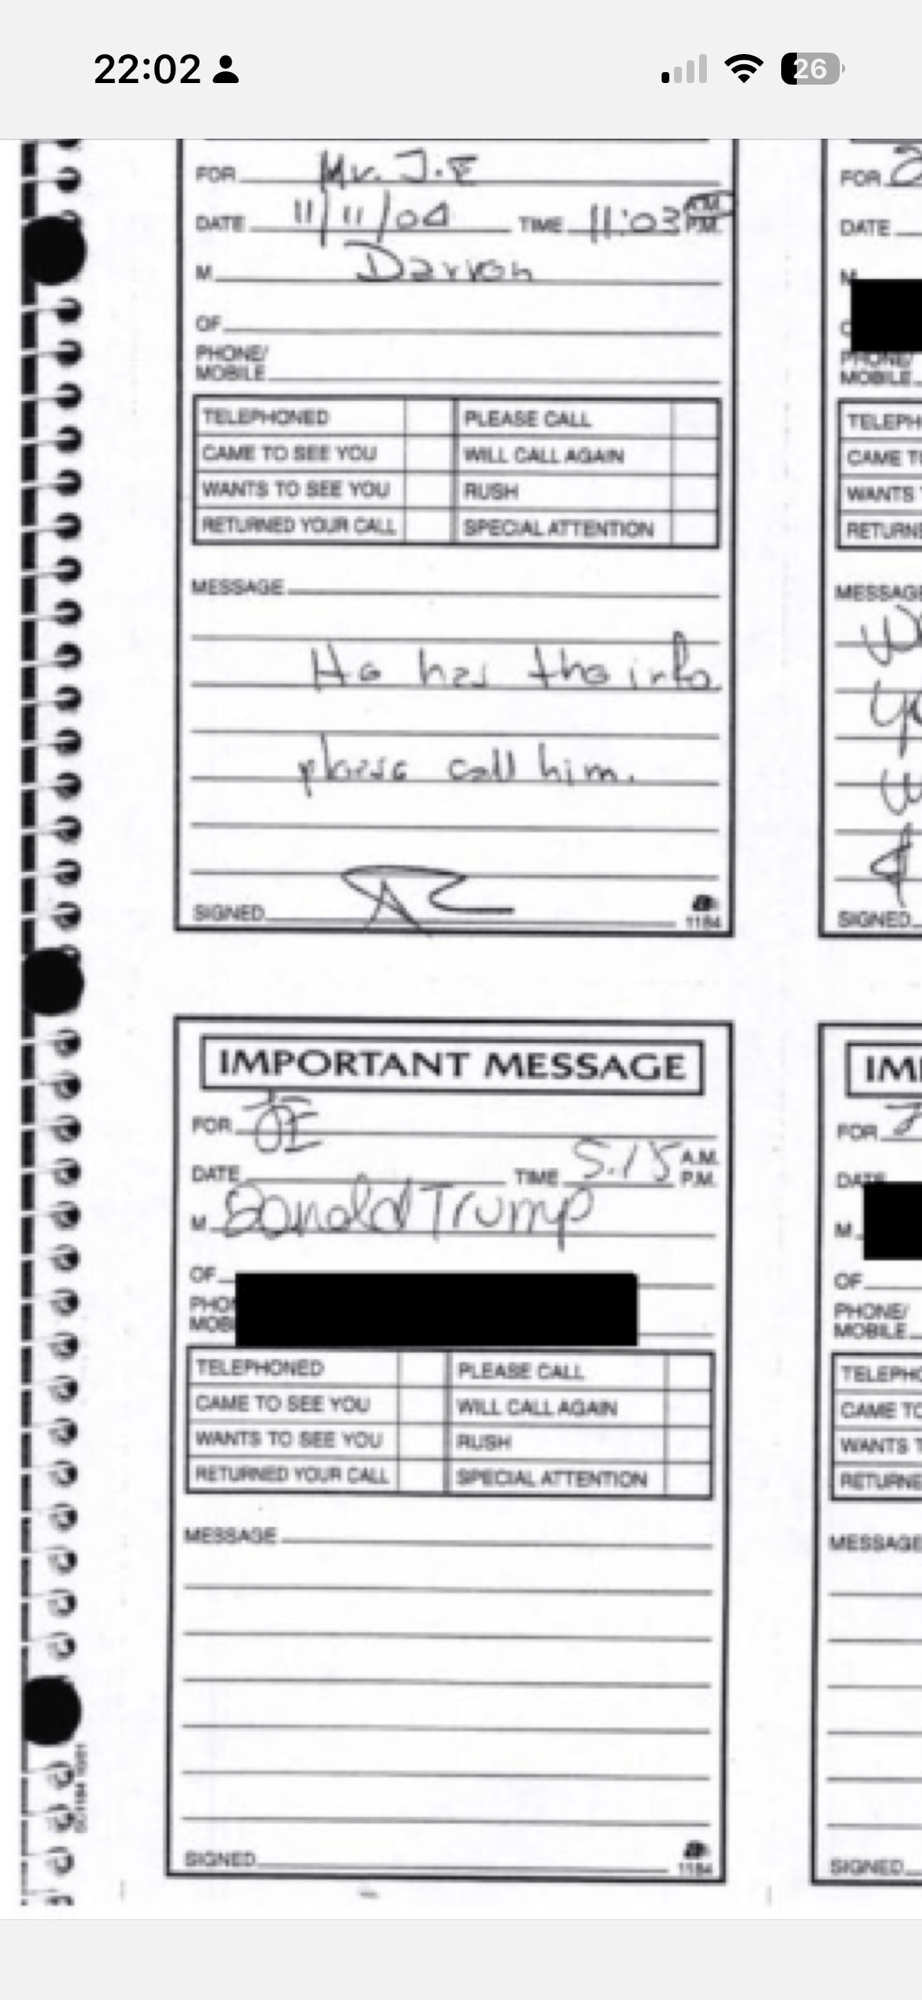 22:02
26
FOR Mr. J.E
DATE 11/11/04 TIME 11:03 A.M. P.M.
M Darren
OF
PHONE/
MOBILE
TELEPHONED PLEASE CALL
CAME TO SEE YOU WILL CALL AGAIN
WANTS TO SEE YOU RUSH
RETURNED YOUR CALL SPECIAL ATTENTION
MESSAGE
He has the info
please call him.
SIGNED
1184
FOR
DATE
M
PHONE/
MOBILE
TELEPH
CAME T
WANTS
RETURNE
MESSAGE
SIGNED
IMPORTANT MESSAGE
FOR JE
DATE TIME 5.15 A.M. P.M.
M Donald Trump
OF
PHO
MOBI
TELEPHONED PLEASE CALL
CAME TO SEE YOU WILL CALL AGAIN
WANTS TO SEE YOU RUSH
RETURNED YOUR CALL SPECIAL ATTENTION
MESSAGE
SIGNED
1184
IM
FOR
DATE
M
OF
PHONE/
MOBILE
TELEPHO
CAME TO
WANTS T
RETURNE
MESSAGE
SIGNED